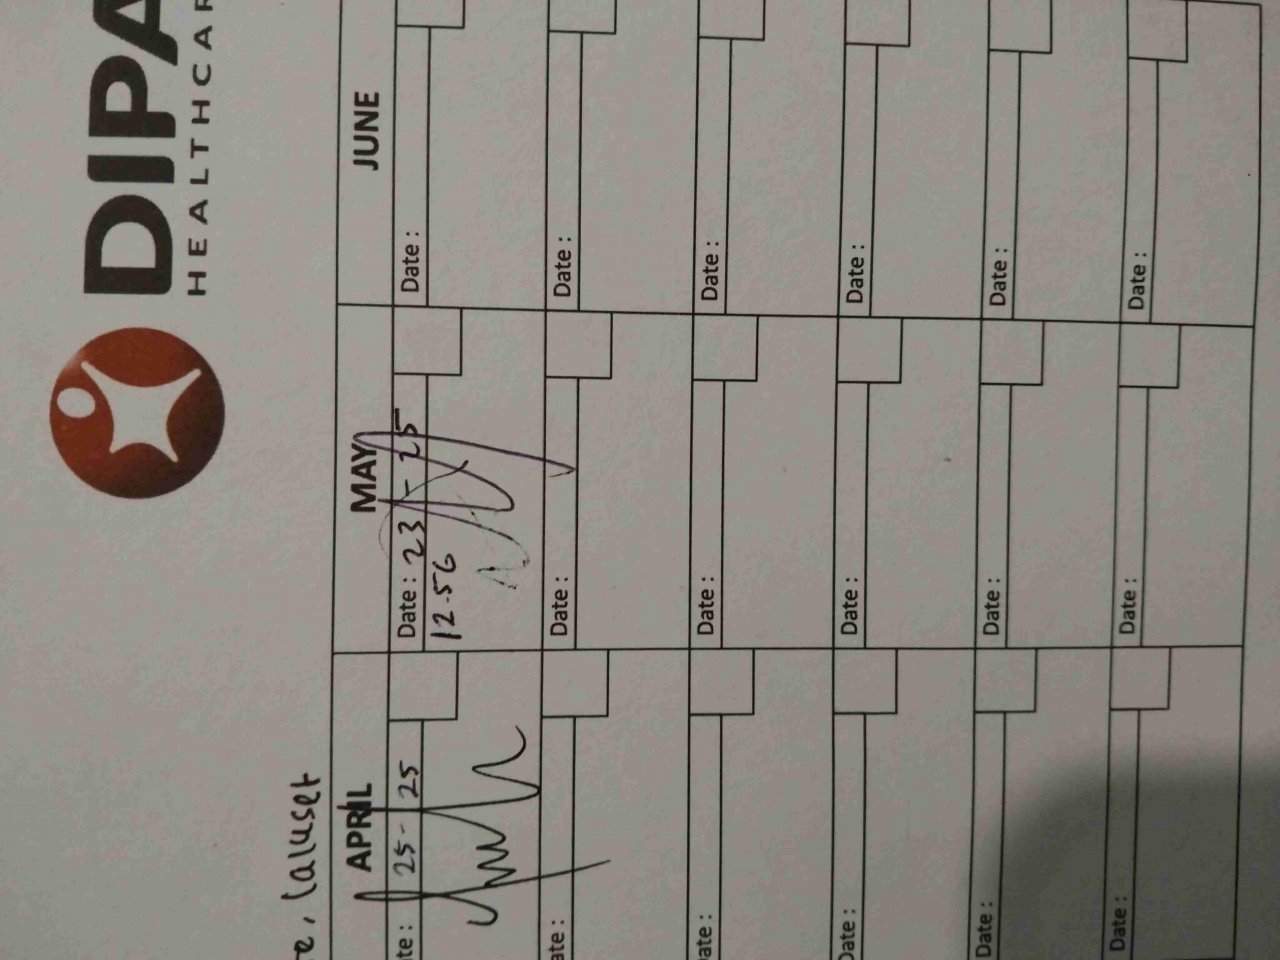 DIPA
HEALTHCAR
e, Caluset
APRIL MAY JUNE
te: 25- 25 Date: 23 - 25 Date:
12-56
ate: Date: Date:
ate: Date: Date:
Date: Date: Date:
Date: Date: Date:
Date: Date: Date: